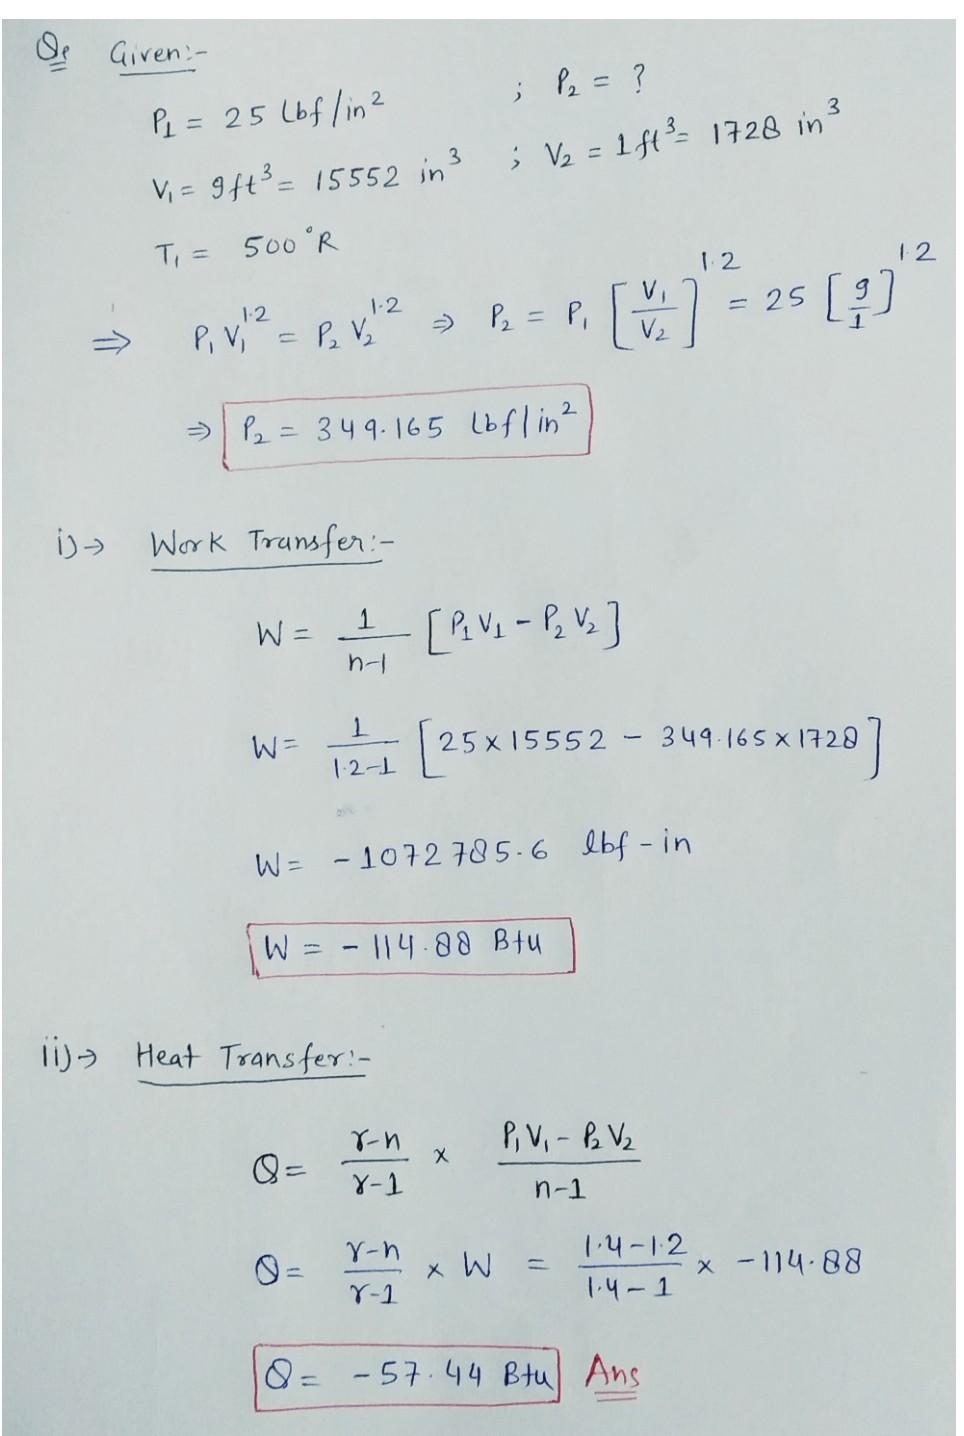 Q: Given:-
P1 = 25 lbf/in² ; P2 = ?
V1 = 9ft³ = 15552 in³ ; V2 = 1ft³ = 1728 in³
T1 = 500°R
⇒ P1 V1^1.2 = P2 V2^1.2 ⇒ P2 = P1 [V1/V2]^1.2 = 25 [9/1]^1.2
⇒ P2 = 349.165 lbf/in²
i) → Work Transfer:-
W = 1/(n-1) [P1 V1 - P2 V2]
W = 1/(1.2-1) [25 x 15552 - 349.165 x 1728]
W = -1072785.6 lbf-in
W = -114.88 Btu
ii) → Heat Transfer:-
Q = (γ-n)/(γ-1) x (P1 V1 - P2 V2)/(n-1)
Q = (γ-n)/(γ-1) x W = (1.4-1.2)/(1.4-1) x -114.88
Q = -57.44 Btu Ans